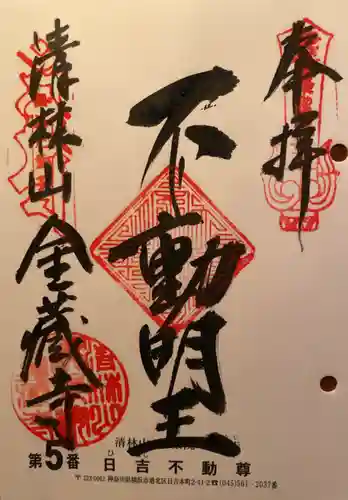 奉拝
不動明王
清林山
金蔵寺
清林山
第5番 日吉不動尊
ひ
〒223-0061 神奈川県横浜市港北区日吉本町2-41-2 ☎(045)561-2037番